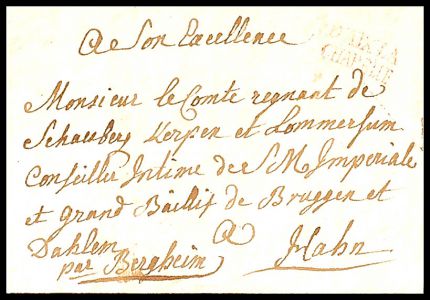 A Son Excellence
D'AIX LA
CHAPELLE
Monsieur le Comte regnant de
Schaesberg Kerpen et Lommersum
Conseillie Intime de S M Imperiale
et Grand Baillif de Bruggen et
Dahlem a
par Bergheim Hahn